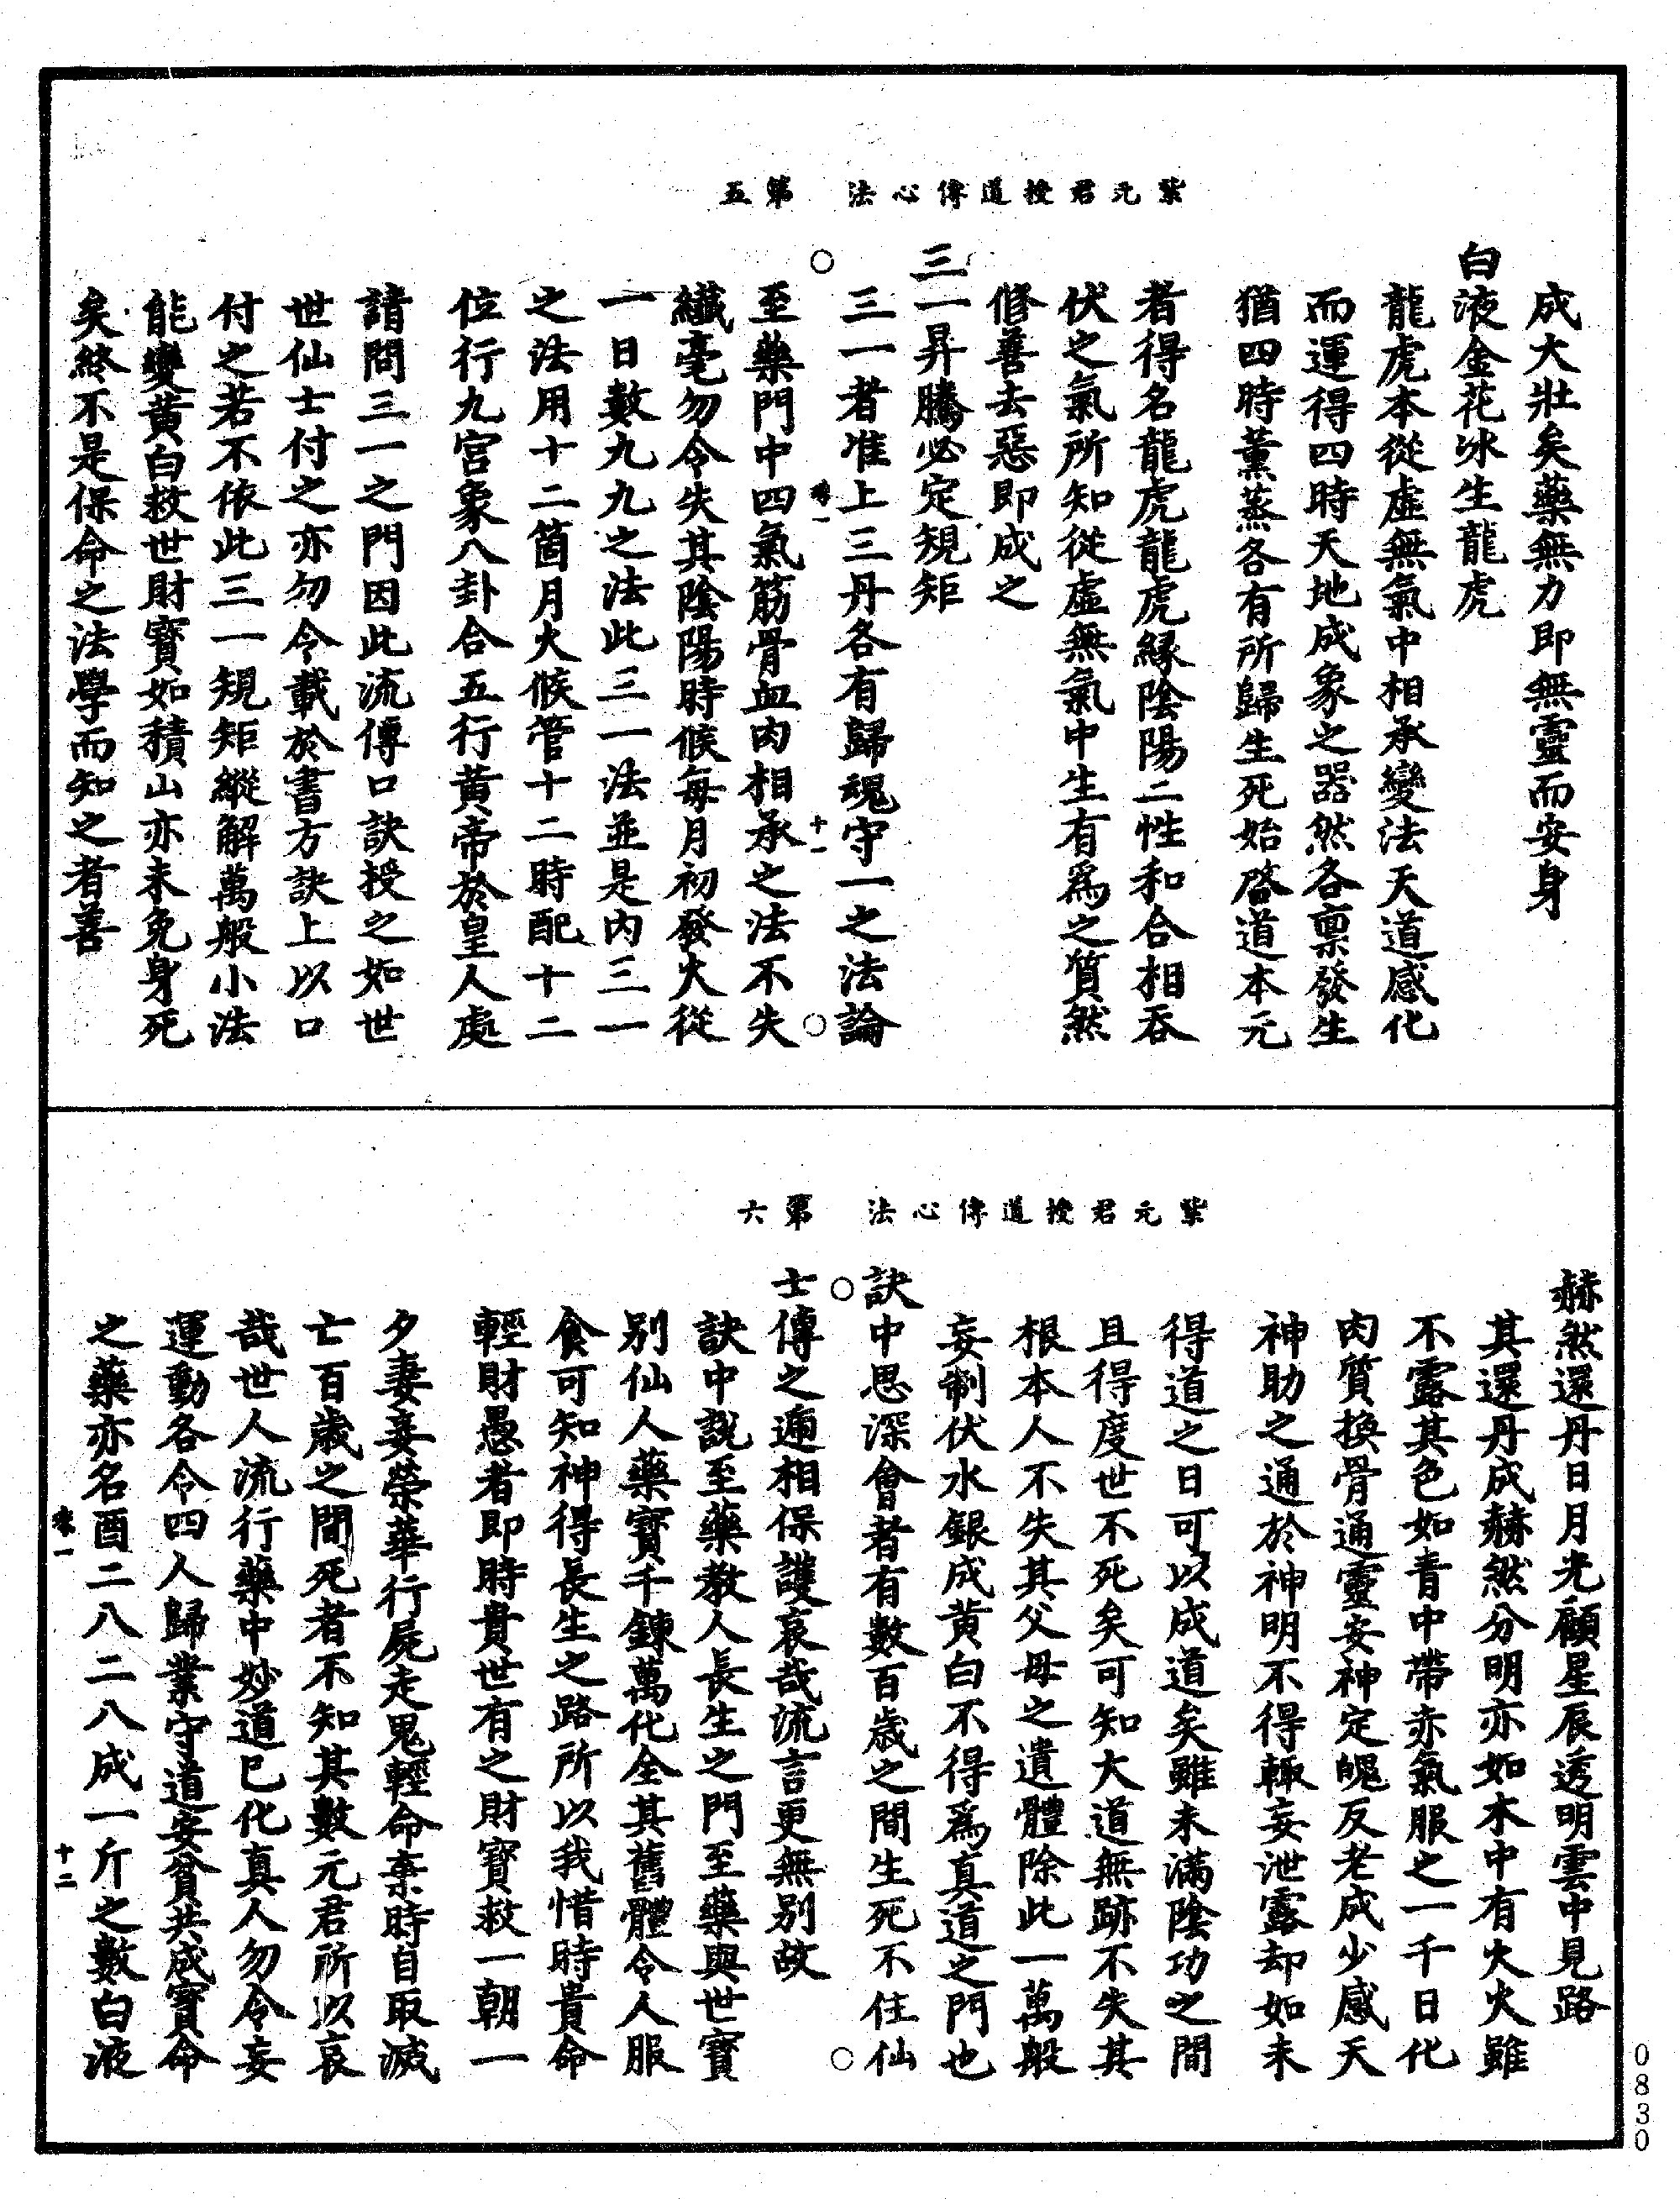 紫元君授道傳心法　第五
成大壯矣藥無力即無靈而安身
白液金花冰生龍虎
龍虎本從虛無氣中相承變法天道感化
而運得四時天地成象之器然各稟發生
猶四時薰蒸各有所歸生死始啓道本元
者得名龍虎龍虎緣陰陽二性和合相吞
伏之氣所知從虛無氣中生有爲之質然
修善去惡即成之
三一昇騰必定規矩
三一者准上三丹各有歸魂守一之法論
至藥門中四氣筋骨血肉相承之法不失
纎毫勿令失其陰陽時候每月初發火從
一日數九九之法此三一法並是內三一
之法用十二箇月火候管十二時配十二
位行九宮象八卦合五行黃帝於皇人處
請問三一之門因此流傳口訣授之如世
世仙士付之亦勿令載於書方訣上以口
付之若不依此三一規矩縱解萬般小法
能變黃白救世財寶如積山亦未免身死
矣終不是保命之法學而知之者善
十一
紫元君授道傳心法　第六
赫然還丹日月光顧星辰透明雲中見路
其還丹成赫然分明亦如木中有火火雖
不露其色如青中帶赤氣服之一千日化
肉質換骨通靈安神定魄反老成少感天
神助之通於神明不得輙妄泄露却如未
得道之日可以成道矣雖未滿陰功之間
且得度世不死矣可知大道無跡不失其
根本人不失其父母之遺體除此一萬般
妄制伏水銀成黃白不得爲真道之門也
訣中思深會者有數百歲之間生死不住仙
士傳之遞相保護哀哉流言更無別故
訣中說至藥教人長生之門至藥與世寶
別仙人藥寶千鍊萬化全其舊體令人服
食可知神得長生之路所以我惜時貴命
輕財愚者即時貴世有之財寶救一朝一
夕妻妾榮華行屍走鬼輕命棄時自取滅
亡百歲之間死者不知其數元君所以哀
哉世人流行藥中妙道已化真人勿令妄
運動各令四人歸業守道安貧共成寶命
之藥亦名酉二八二八成一斤之數白液
十二
0830